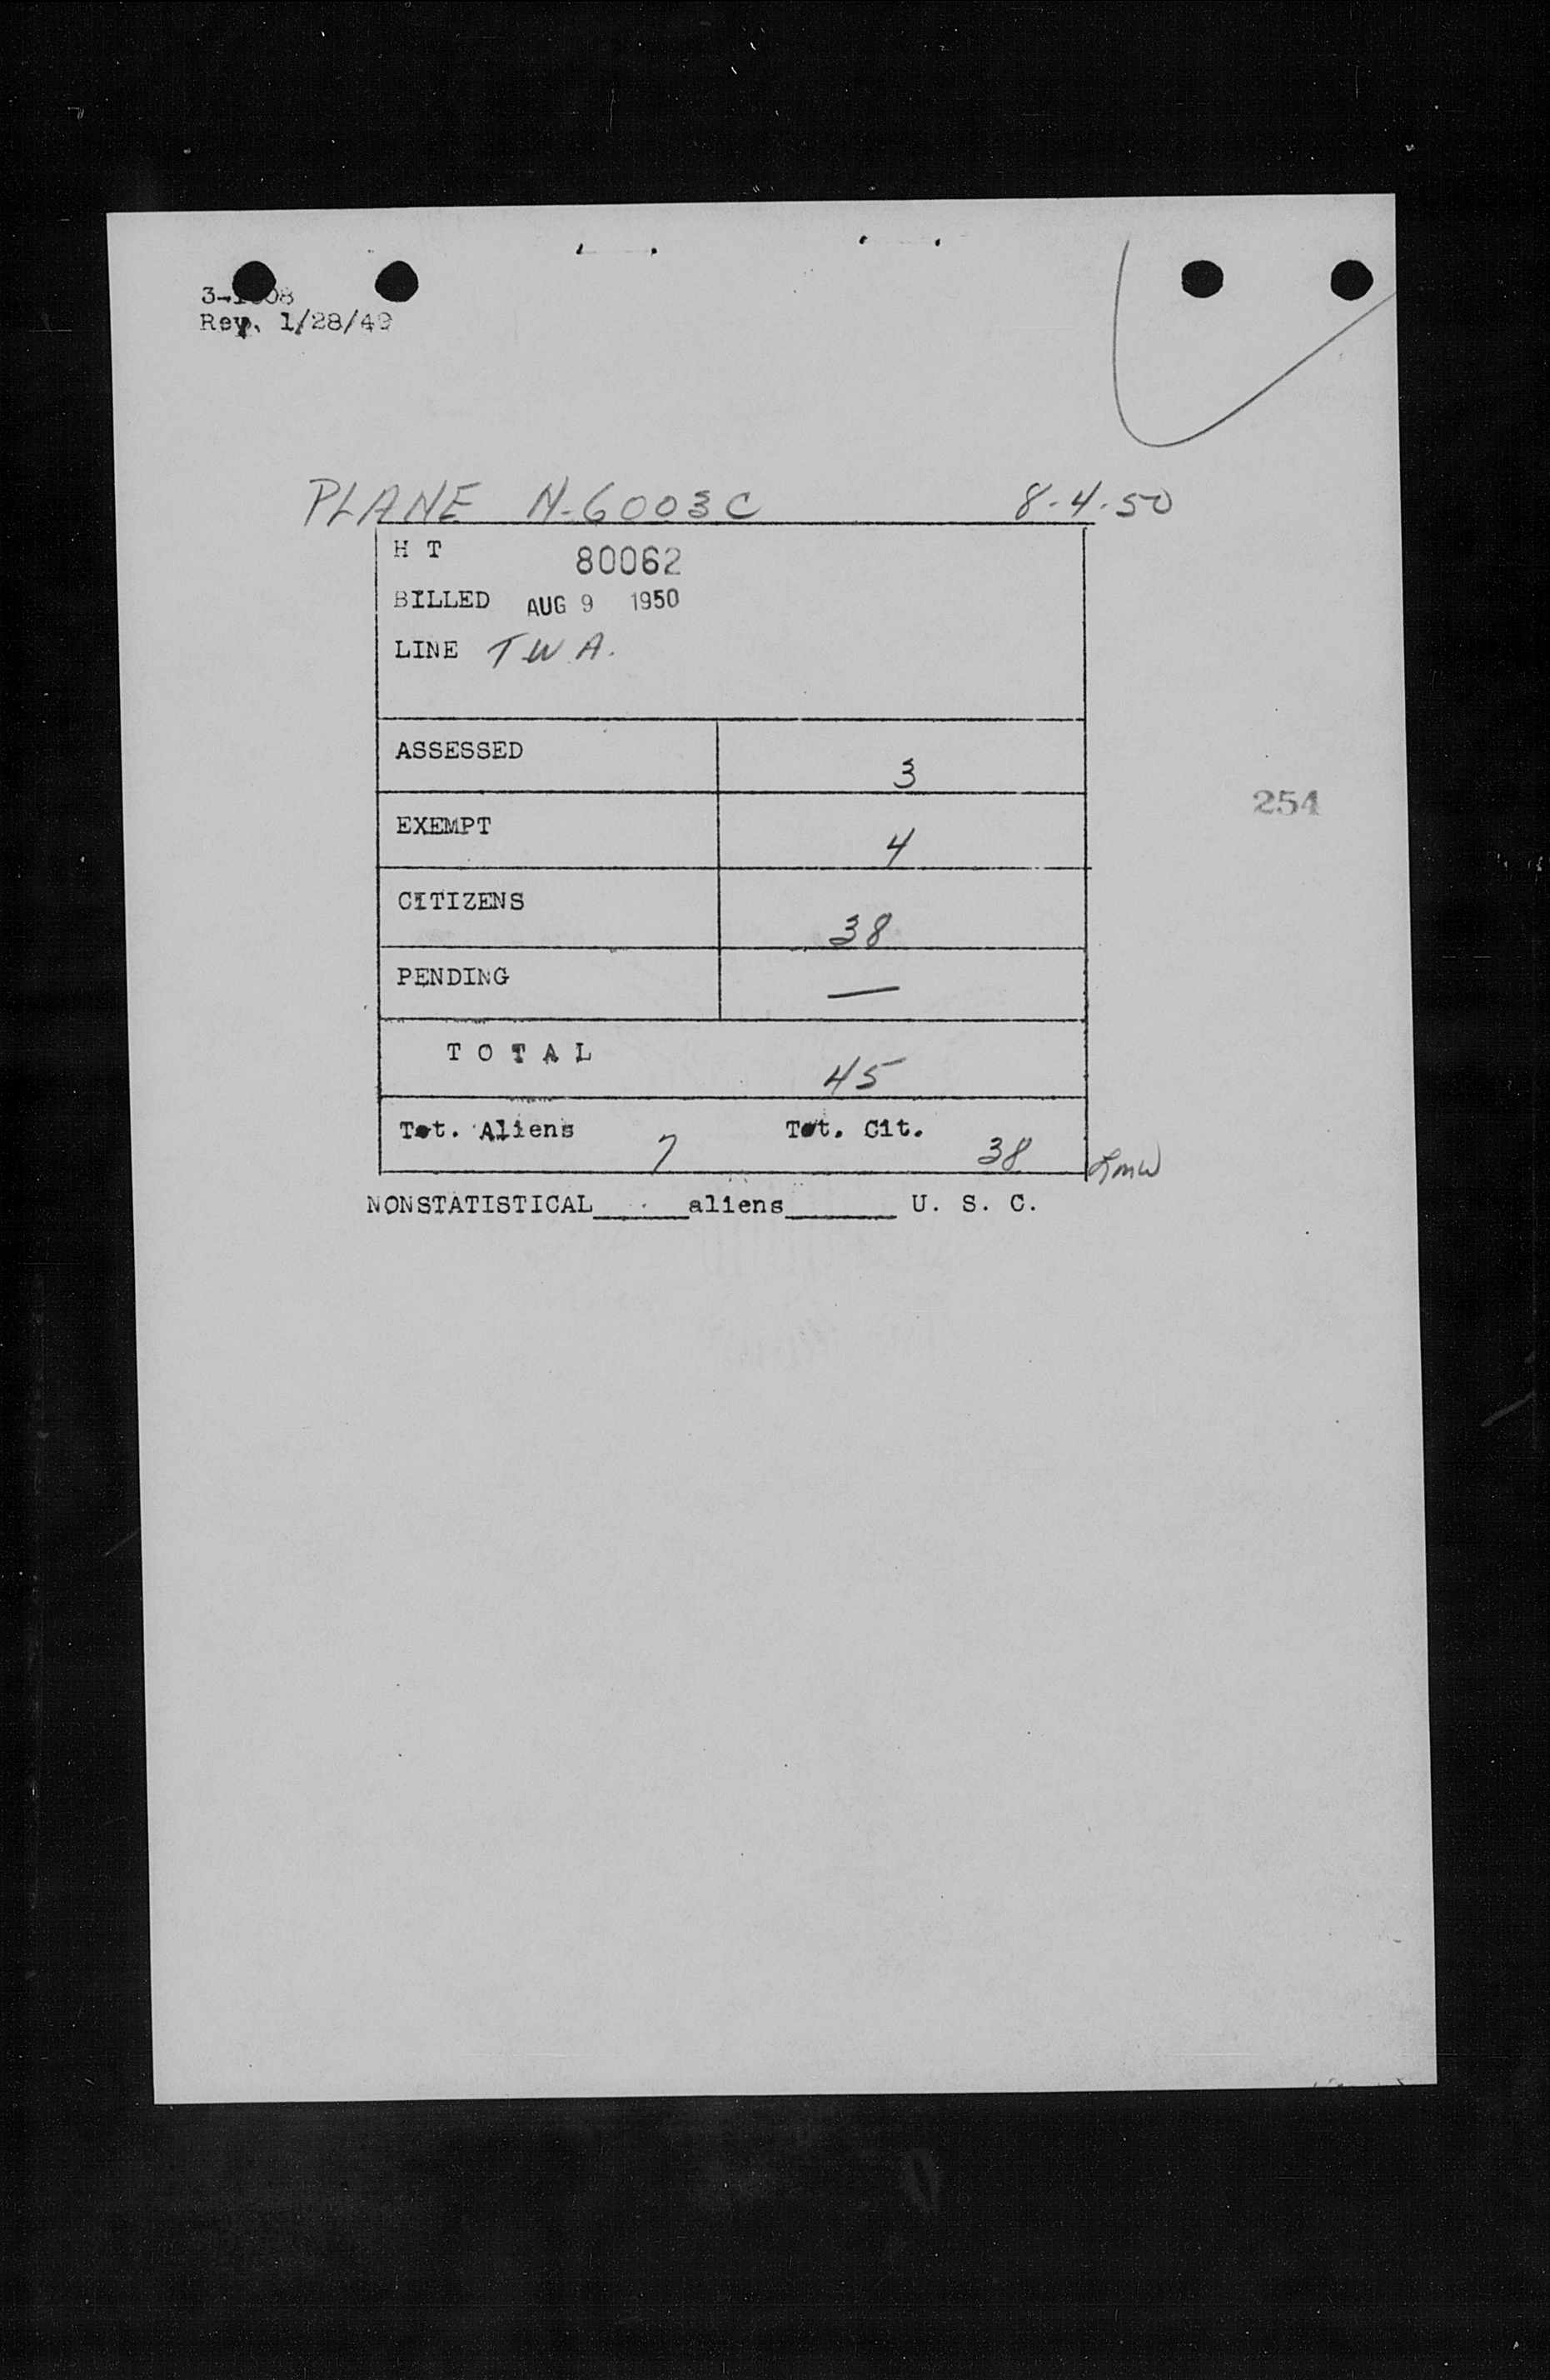 Rev. 1/28/49
PLANE N-6003C 8-4-50
H T 80062
BILLED AUG 9 1950
LINE T W A.
ASSESSED 3
EXEMPT 4
254
CITIZENS 38
PENDING —
T O T A L 45
Tot. Aliens 7 Tot. Cit. 38
NONSTATISTICAL______aliens_______ U. S. C.